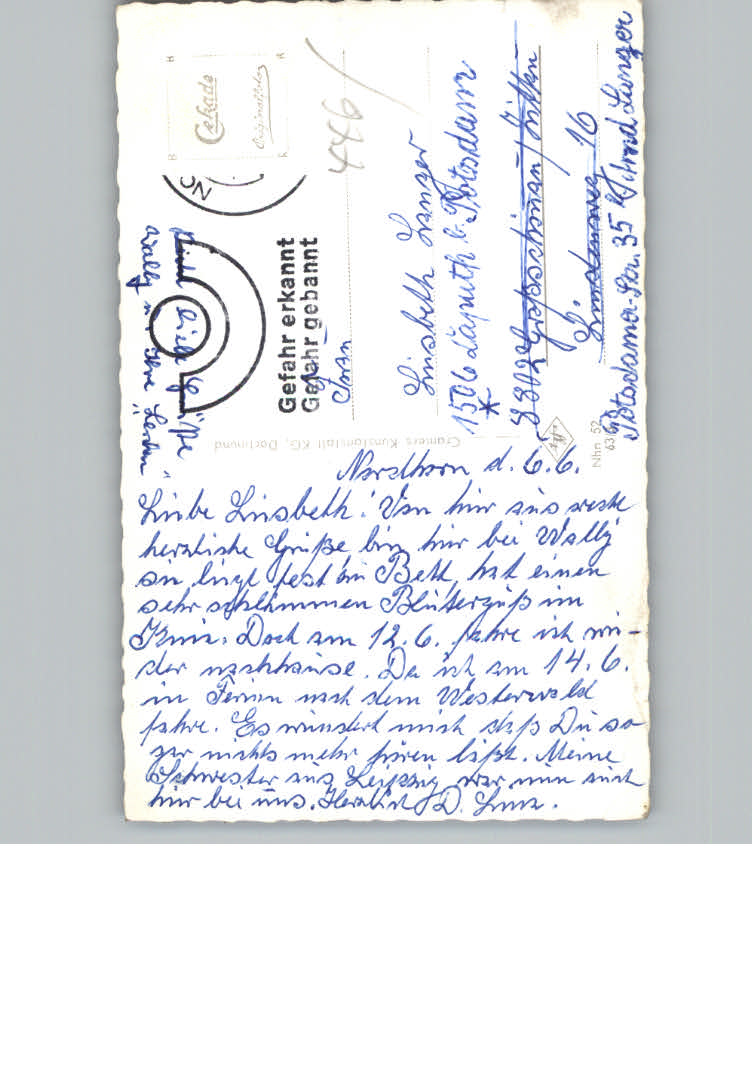 Nordhorn d. 6.6.
Liebe Liesbeth! Von hier aus recht
herzliche Grüße, bin hier bei Wally
sie liegt fest im Bett, hat einen
sehr schlimmen Bluterguß im
Knie. Doch am 12.6. fahre ich wie-
der nachhause. Da ich am 14.6.
in Ferien nach dem Westerwald
fahre. Es wundert mich daß Du so
gar nichts mehr hören läßt. Meine
Schwester aus Leipzig war nun auch
hier bei uns. Herzlichst D.
Viele liebe Grüße
Wally u. Ihre Lieben
Cekade
Originalfoto
446
Gefahr erkannt
Gefahr gebannt
Frau
Liesbeth Langer
1506 Caputh b. Potsdam
*
8802 Großschönau/Zittau
16
Potsdamer-Str. 35 Langer
Cramers Kunstanstalt KG, Dortmund
Nhn 52